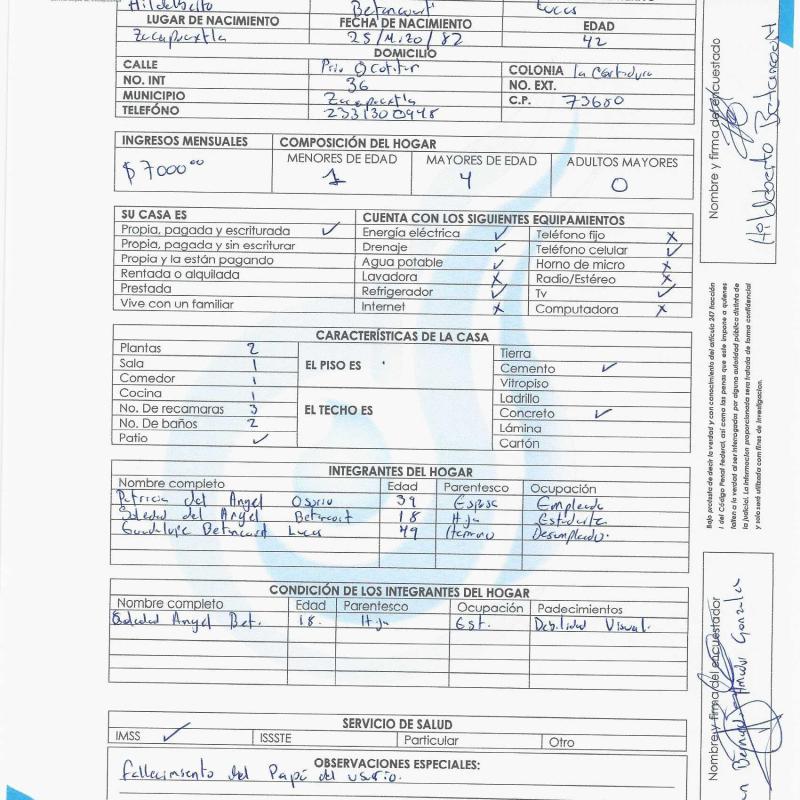 Hildelberto Betancourt Lucas
LUGAR DE NACIMIENTO FECHA DE NACIMIENTO EDAD
Zacapoaxtla 25/Mzo/82 42
DOMICILIO
CALLE Priv. Ocotitur COLONIA la Cortadura
NO. INT 36 NO. EXT.
MUNICIPIO Zacapoaxtla C.P. 73680
TELEFÓNO 2331300948
INGRESOS MENSUALES COMPOSICIÓN DEL HOGAR
$ 7000.00 MENORES DE EDAD MAYORES DE EDAD ADULTOS MAYORES
1 4 0
SU CASA ES CUENTA CON LOS SIGUIENTES EQUIPAMIENTOS
Propia, pagada y escriturada ✓ Energía eléctrica ✓ Teléfono fijo x
Propia, pagada y sin escriturar Drenaje ✓ Teléfono celular ✓
Propia y la están pagando Agua potable ✓ Horno de micro x
Rentada o alquilada Lavadora x Radio/Estéreo x
Prestada Refrigerador ✓ Tv ✓
Vive con un familiar Internet x Computadora x
CARACTERÍSTICAS DE LA CASA
Plantas 2 Tierra
Sala 1 EL PISO ES Cemento ✓
Comedor 1 Vitropiso
Cocina 1 Ladrillo
No. De recamaras 3 EL TECHO ES Concreto ✓
No. De baños 2 Lámina
Patio ✓ Cartón
INTEGRANTES DEL HOGAR
Nombre completo Edad Parentesco Ocupación
Patricia del Angel Osorio 39 Esposa Empleada
Soledad del Angel Betancourt 18 Hija Estudiante
Guadalupe Betancourt Lucas 49 Hermano Desempleado.
CONDICIÓN DE LOS INTEGRANTES DEL HOGAR
Nombre completo Edad Parentesco Ocupación Padecimientos
Soledad Angel Bet. 18. Hija Est. Debilidad Visual.
SERVICIO DE SALUD
IMSS ✓ ISSSTE Particular Otro
OBSERVACIONES ESPECIALES:
fallecimiento del Papá del usuario.
Nombre y firma del encuestado
Hildeberto Betancourt
Bajo protesta de decir la verdad y con conocimiento del artículo 247 fracción
I del Código Penal Federal, así como las penas que este impone a quienes
falten a la verdad al ser interrogados por alguna autoridad pública distinta de
la judicial. La información proporcionada sera tratada de forma confidencial
y solo será utilizada con fines de investigacion.
Nombre y firma del encuestador
Amador Gonzalez